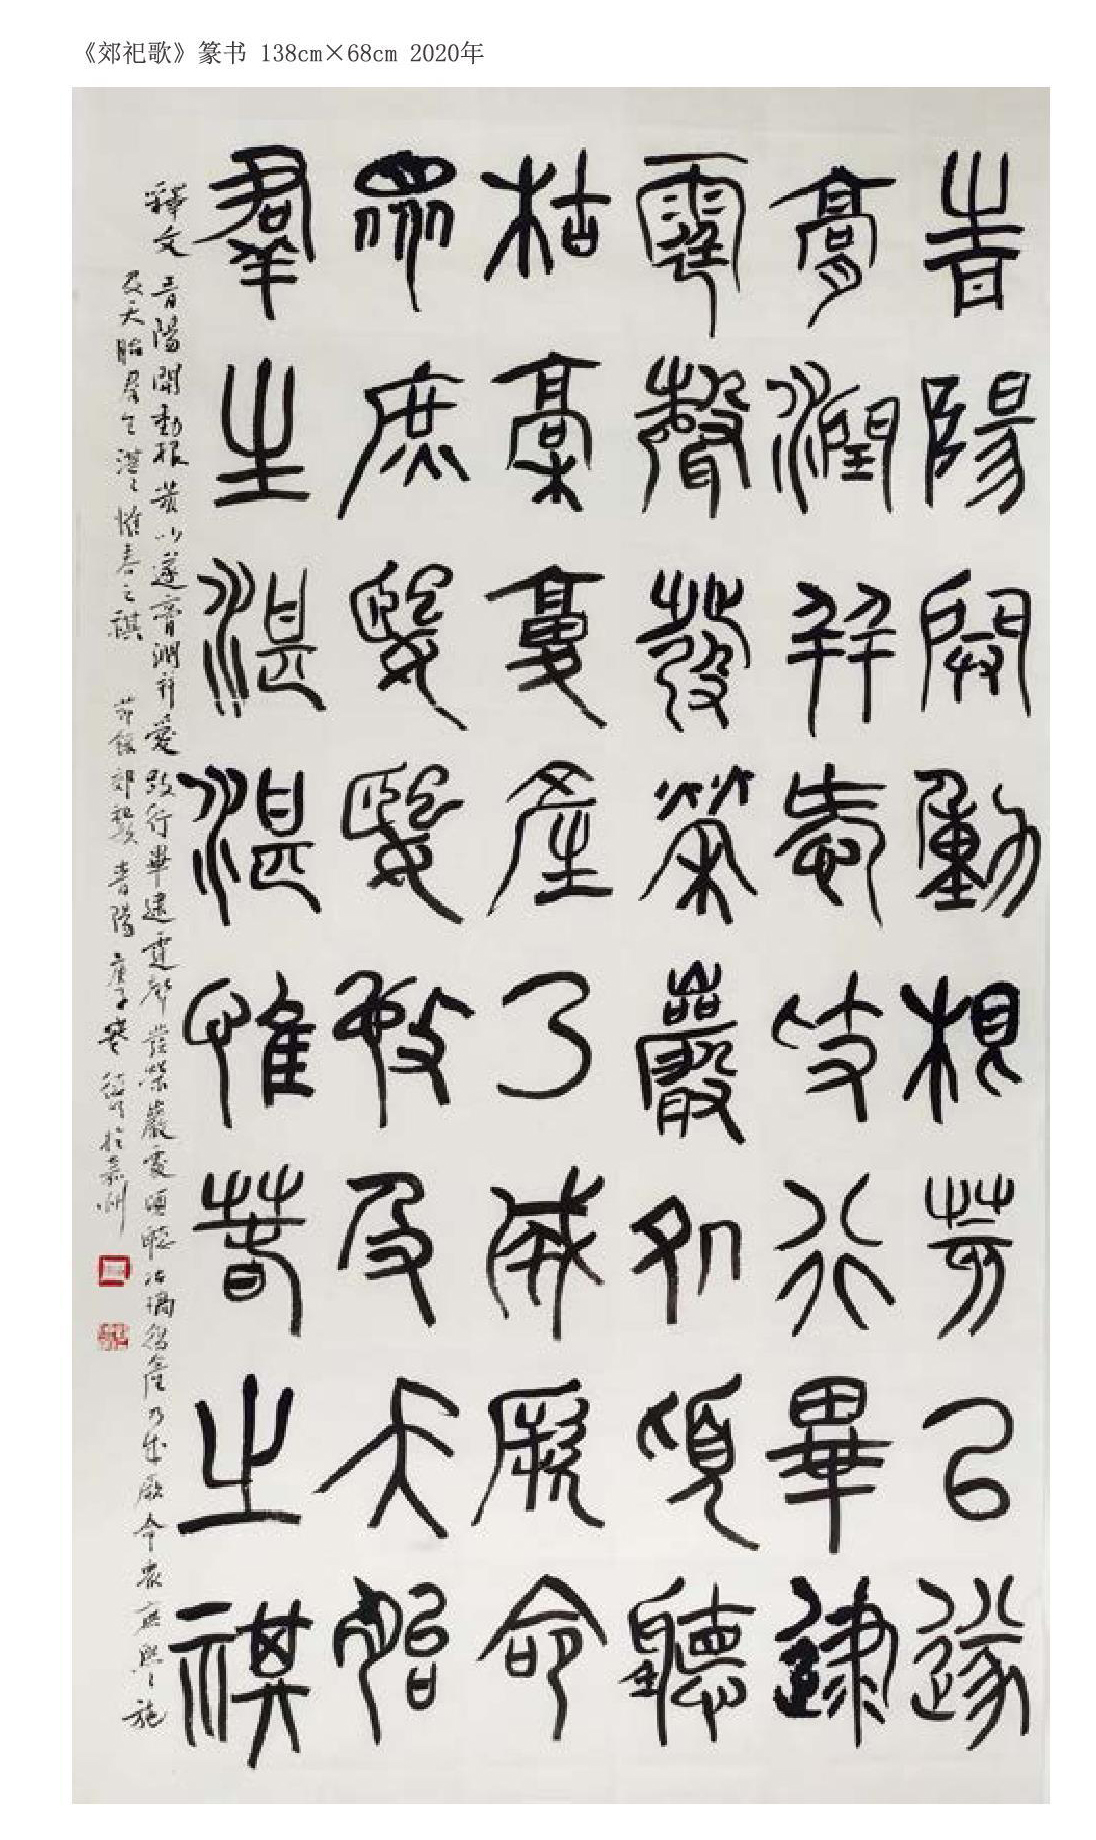 《郊祀歌》篆书 138cm×68cm 2020年
青陽開動根荄以遂
膏潤并愛跂行畢逮
霆聲發榮巖処頃聽
枯槀復產乃成厥命
眾庶熙熙施及夭胎
羣生湛湛惟春之祺
釋文 青陽開動根荄以遂膏潤并愛跂行畢逮霆聲發榮巖處頃聽枯槁復產乃成厥命衆庶熙〻施
及夭胎羣生湛〻惟春之祺 節錄郊 青陽 庚子 於嘉州